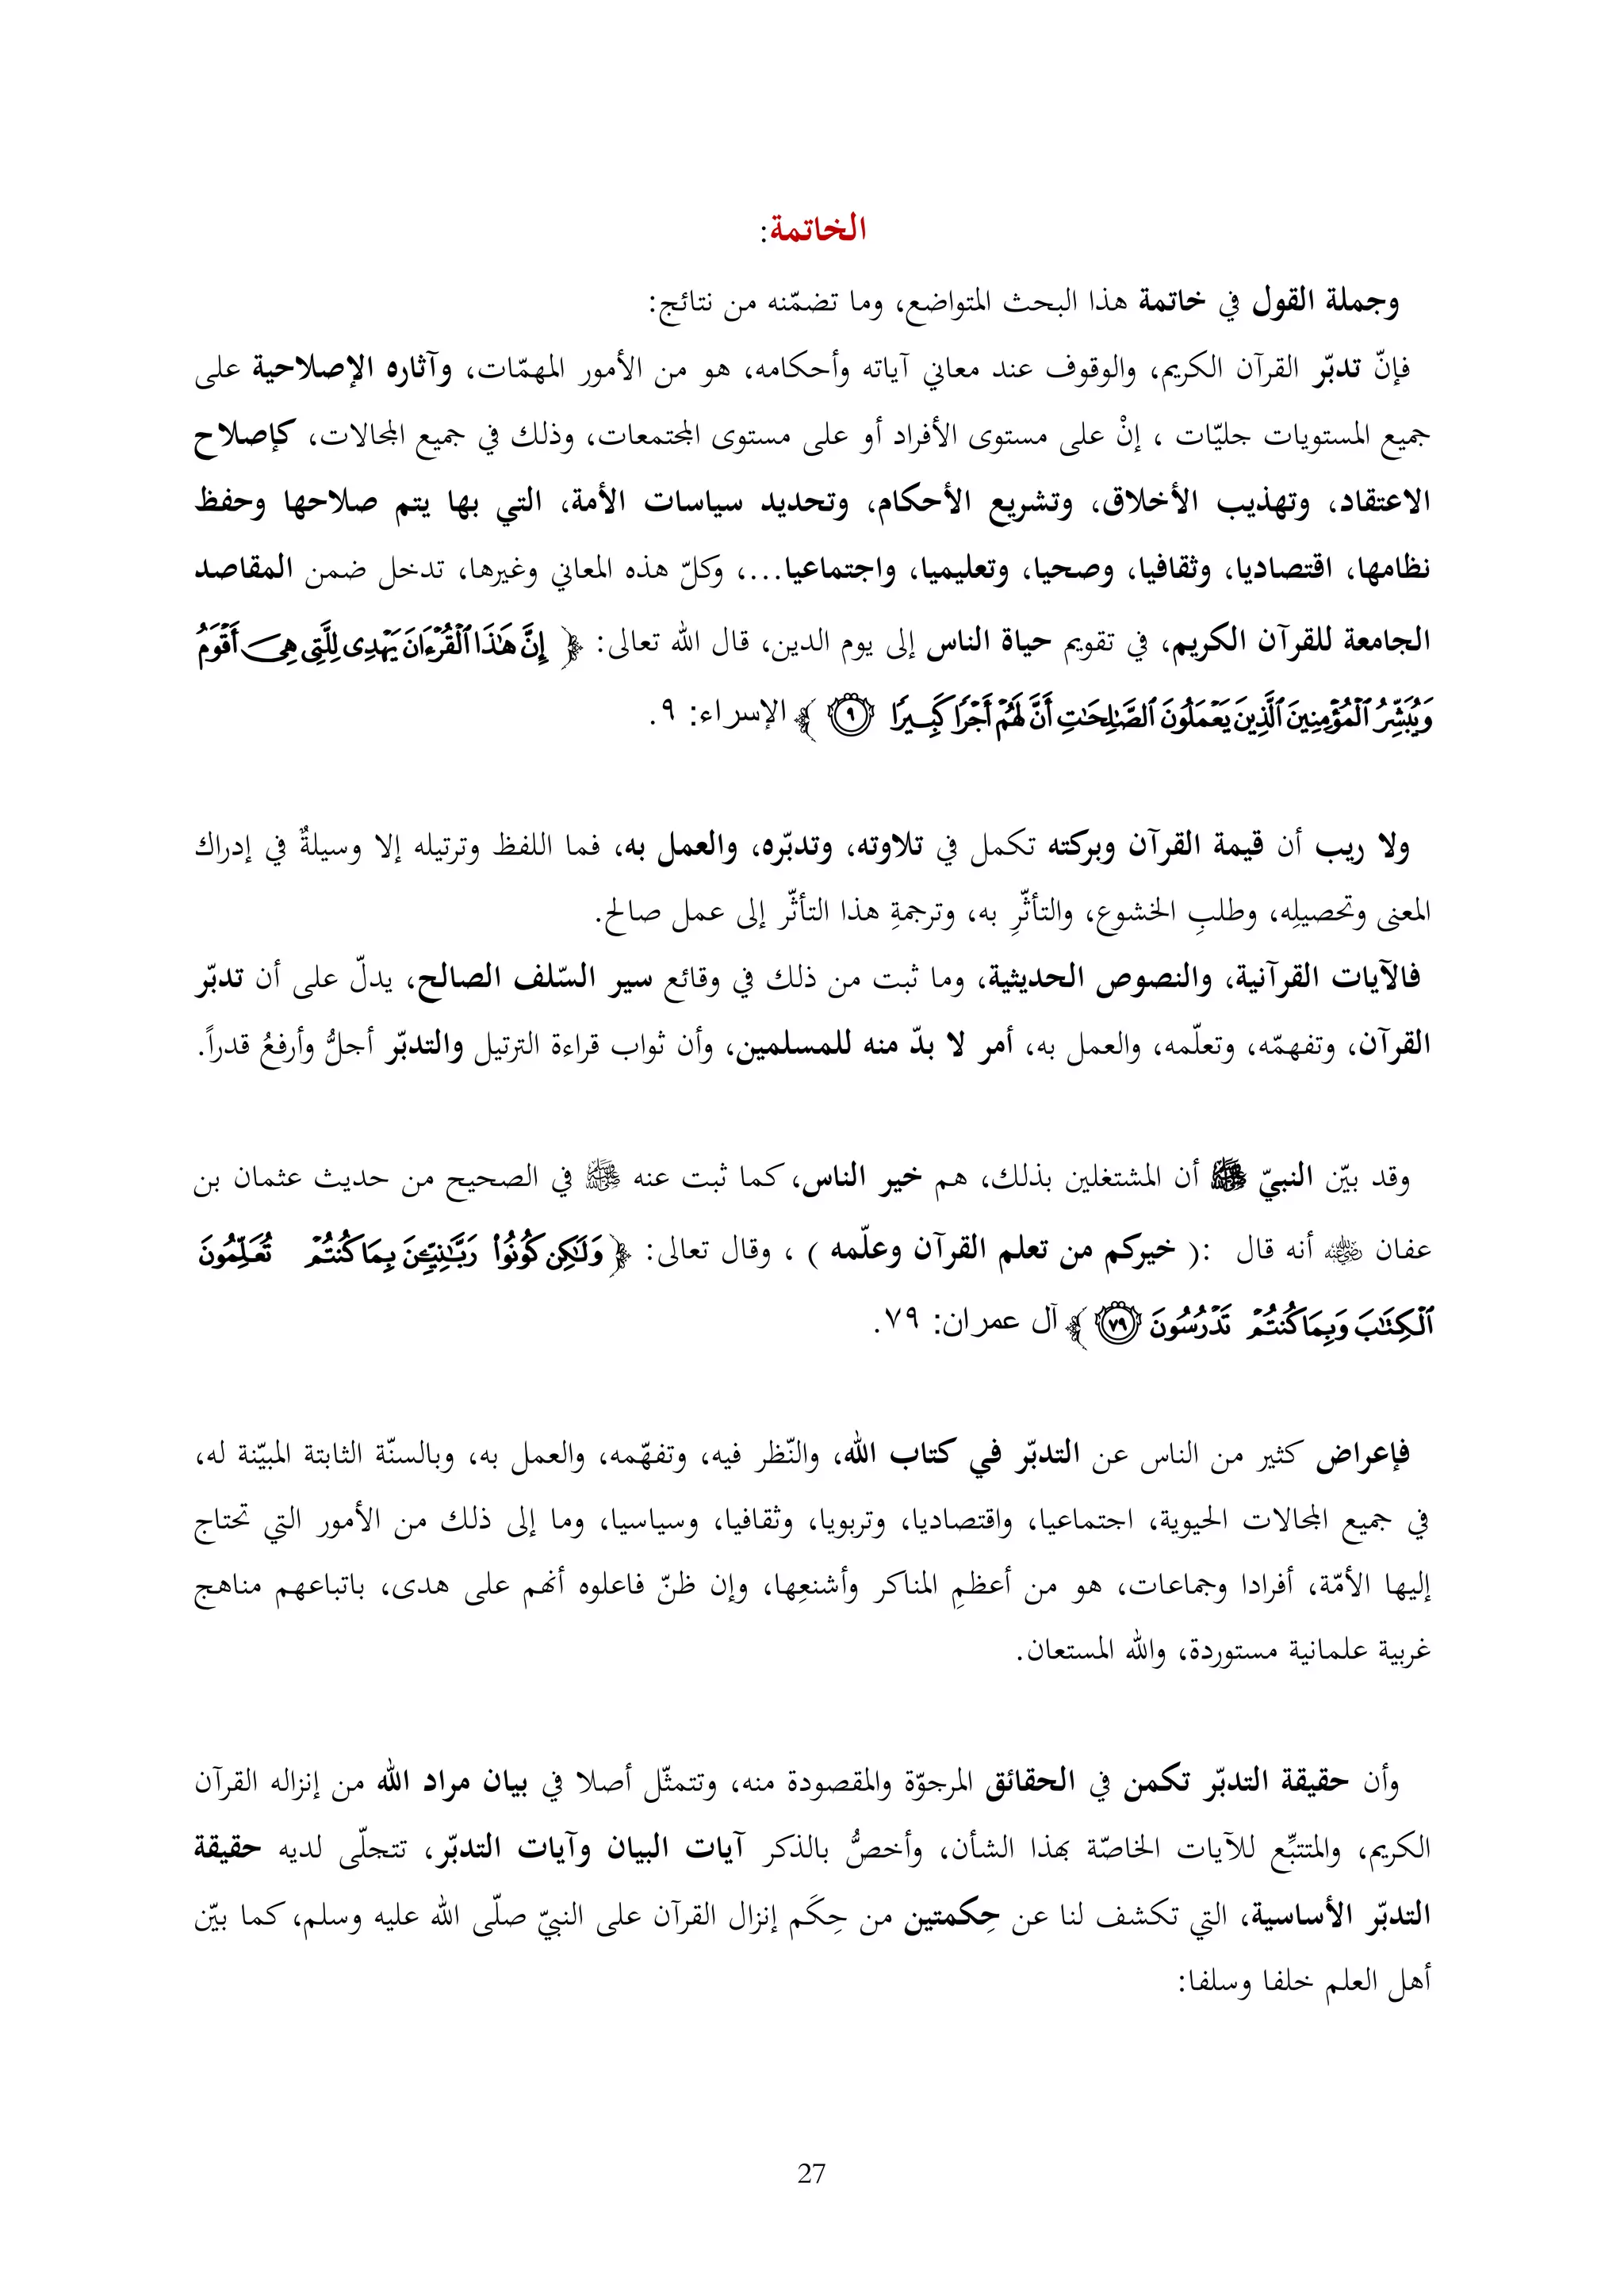 الخاتمة:
وجملة القول في خاتمة هذا البحث المتواضع، وما تضمّنه من نتائج:
فإنّ تدبّر القرآن الكريم، والوقوف عند معاني آياته وأحكامه، هو من الأمور المهمّات، وآثاره الإصلاحية على
جميع المستويات جليّات ، إنْ على مستوى الأفراد أو على مستوى المجتمعات، وذلك في جميع المجالات، كإصلاح
الاعتقاد، وتهذيب الأخلاق، وتشريع الأحكام، وتحديد سياسات الأمة، التي بها يتم صلاحها وحفظ
نظامها، اقتصاديا، وثقافيا، وصحيا، وتعليميا، واجتماعيا...، وكلّ هذه المعاني وغيرها، تدخل ضمن المقاصد
الجامعة للقرآن الكريم، في تقويم حياة الناس إلى يوم الدين، قال الله تعالى: ﴿ إِنَّ هَٰذَا ٱلۡقُرۡءَانَ يَهۡدِى لِلَّتِى هِىَ أَقۡوَمُ
وَيُبَشِّرُ ٱلۡمُؤۡمِنِينَ ٱلَّذِينَ يَعۡمَلُونَ ٱلصَّٰلِحَٰتِ أَنَّ لَهُمۡ أَجۡرٗا كَبِيرٗا ٩ ﴾ الإسراء: ٩.
ولا ريب أن قيمة القرآن وبركته تكمل في تلاوته، وتدبّره، والعمل به، فما اللفظ وترتيله إلا وسيلةٌ في إدراك
المعنى وتحصيلِه، وطلبِ الخشوع، والتأثّرِ به، وترجمةِ هذا التأثّر إلى عمل صالح.
فالآيات القرآنية، والنصوص الحديثية، وما ثبت من ذلك في وقائع سير السّلف الصالح، يدلّ على أن تدبّر
القرآن، وتفهمّه، وتعلّمه، والعمل به، أمر لا بدّ منه للمسلمين، وأن ثواب قراءة الترتيل والتدبّر أجلُّ وأرفعُ قدراً.
وقد بيّن النبيّ ﷺ أن المشتغلين بذلك، هم خير الناس، كما ثبت عنه ﷺ في الصحيح من حديث عثمان بن
عفان ﷺ أنه قال :( خيركم من تعلم القرآن وعلّمه ) ، وقال تعالى: ﴿ وَلَٰكِن كُونُواْ رَبَّٰنِيِّـۧنَ بِمَا كُنتُمۡ تُعَلِّمُونَ
ٱلۡكِتَٰبَ وَبِمَا كُنتُمۡ تَدۡرُسُونَ ٧٩ ﴾ آل عمران: ٧٩.
فإعراض كثير من الناس عن التدبّر في كتاب الله، والنّظر فيه، وتفهّمه، والعمل به، وبالسنّة الثابتة المبيّنة له،
في جميع المجالات الحيوية، اجتماعيا، واقتصاديا، وتربويا، وثقافيا، وسياسيا، وما إلى ذلك من الأمور التي تحتاج
إليها الأمّة، أفرادا وجماعات، هو من أعظمِ المناكر وأشنعِها، وإن ظنّ فاعلوه أنهم على هدى، باتباعهم مناهج
غربية علمانية مستوردة، والله المستعان.
وأن حقيقة التدبّر تكمن في الحقائق المرجوّة والمقصودة منه، وتتمثّل أصلا في بيان مراد الله من إنزاله القرآن
الكريم، والمتتبِّع للآيات الخاصّة بهذا الشأن، وأخصُّ بالذكر آيات البيان وآيات التدبّر، تتجلّى لديه حقيقة
التدبّر الأساسية، التي تكشف لنا عن حِكمتين من حِكَم إنزال القرآن على النبيّ صلّى الله عليه وسلم، كما بيّن
أهل العلم خلفا وسلفا:
27